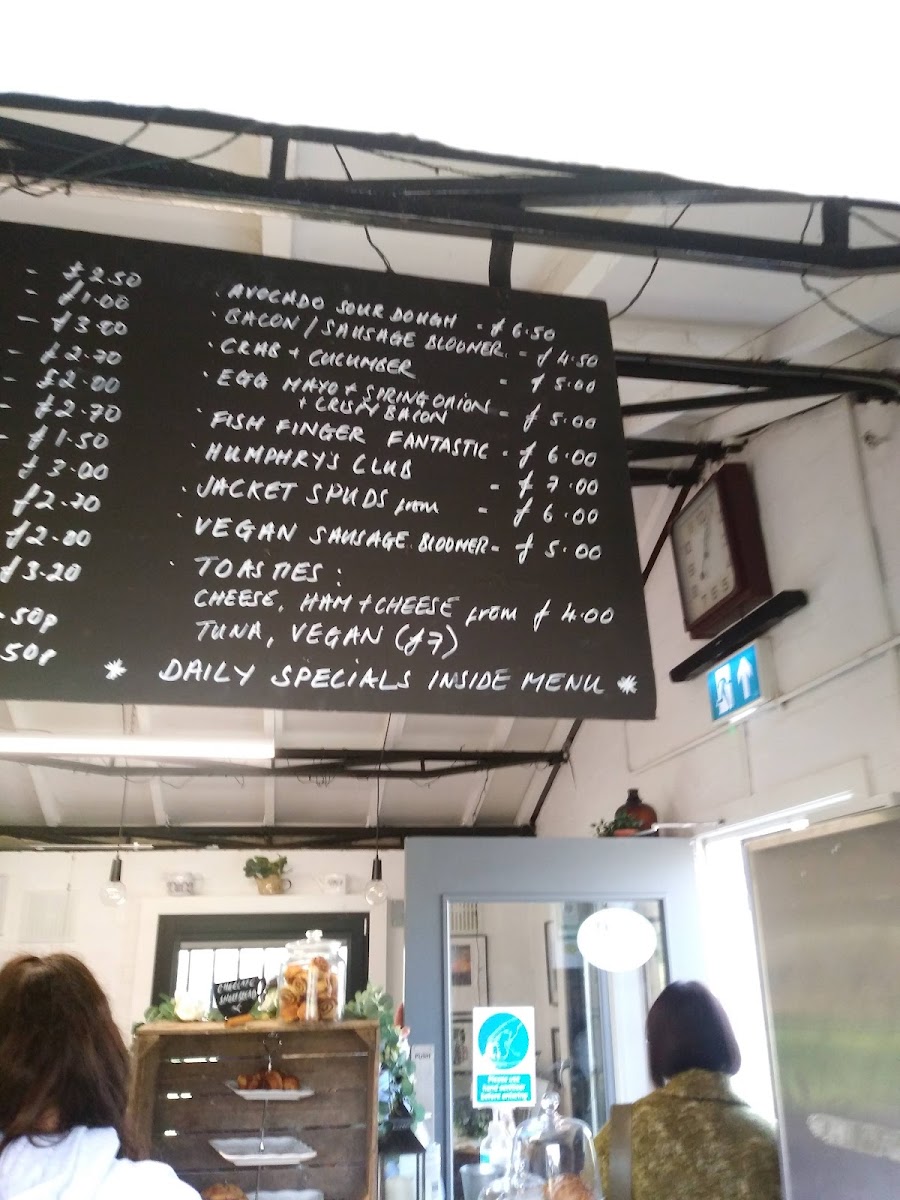 - £2.50
- £1.00
- £3.80
- £2.70
- £2.00
- £2.70
- £1.50
£3.00
£2.70
£2.80
£3.20
- 50p
50p
· AVOCADO SOUR DOUGH - £6.50
· BACON / SAUSAGE BLOOMER - £4.50
· CRAB + CUCUMBER - £5.00
· EGG MAYO + SPRING ONION
+ CRISPY BACON - £5.00
· FISH FINGER FANTASTIC - £6.00
· HUMPHRY'S CLUB - £7.00
· JACKET SPUDS from - £6.00
· VEGAN SAUSAGE BLOOMER - £5.00
· TOASTIES:
CHEESE, HAM + CHEESE from £4.00
TUNA, VEGAN (£7)
* DAILY SPECIALS INSIDE MENU *
CHOCOLATE
PUSH
Please use
hand sanitiser
before entering